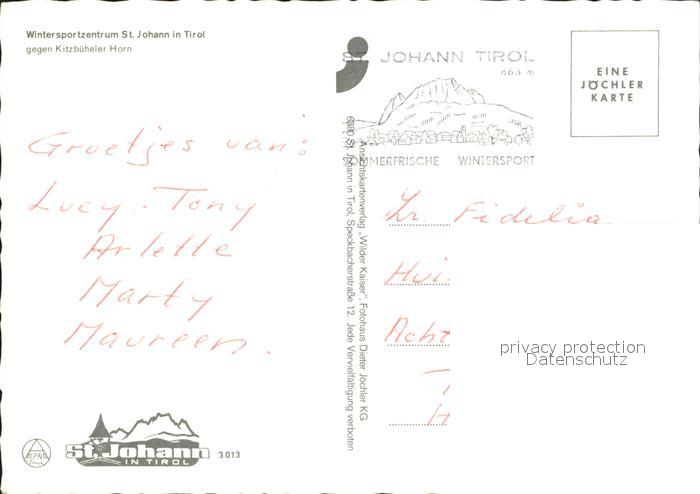 Wintersportzentrum St. Johann in Tirol
gegen Kitzbüheler Horn
Groetjes van:
Lucy - Tony
Arlette
Marty
Maureen.
St. Johann
IN TIROL
3013
ALPINA
Ansichtskartenverlag „Wilder Kaiser", Fotohaus Dieter Jöchler KG
6380 St. Johann in Tirol, Speckbacherstraße 12. Jede Vervielfältigung verboten
ST. JOHANN TIROL
663 m
SOMMERFRISCHE WINTERSPORT
EINE
JÖCHLER
KARTE
Zr. Fidelia
Hui
Acht
H
privacy protection
Datenschutz